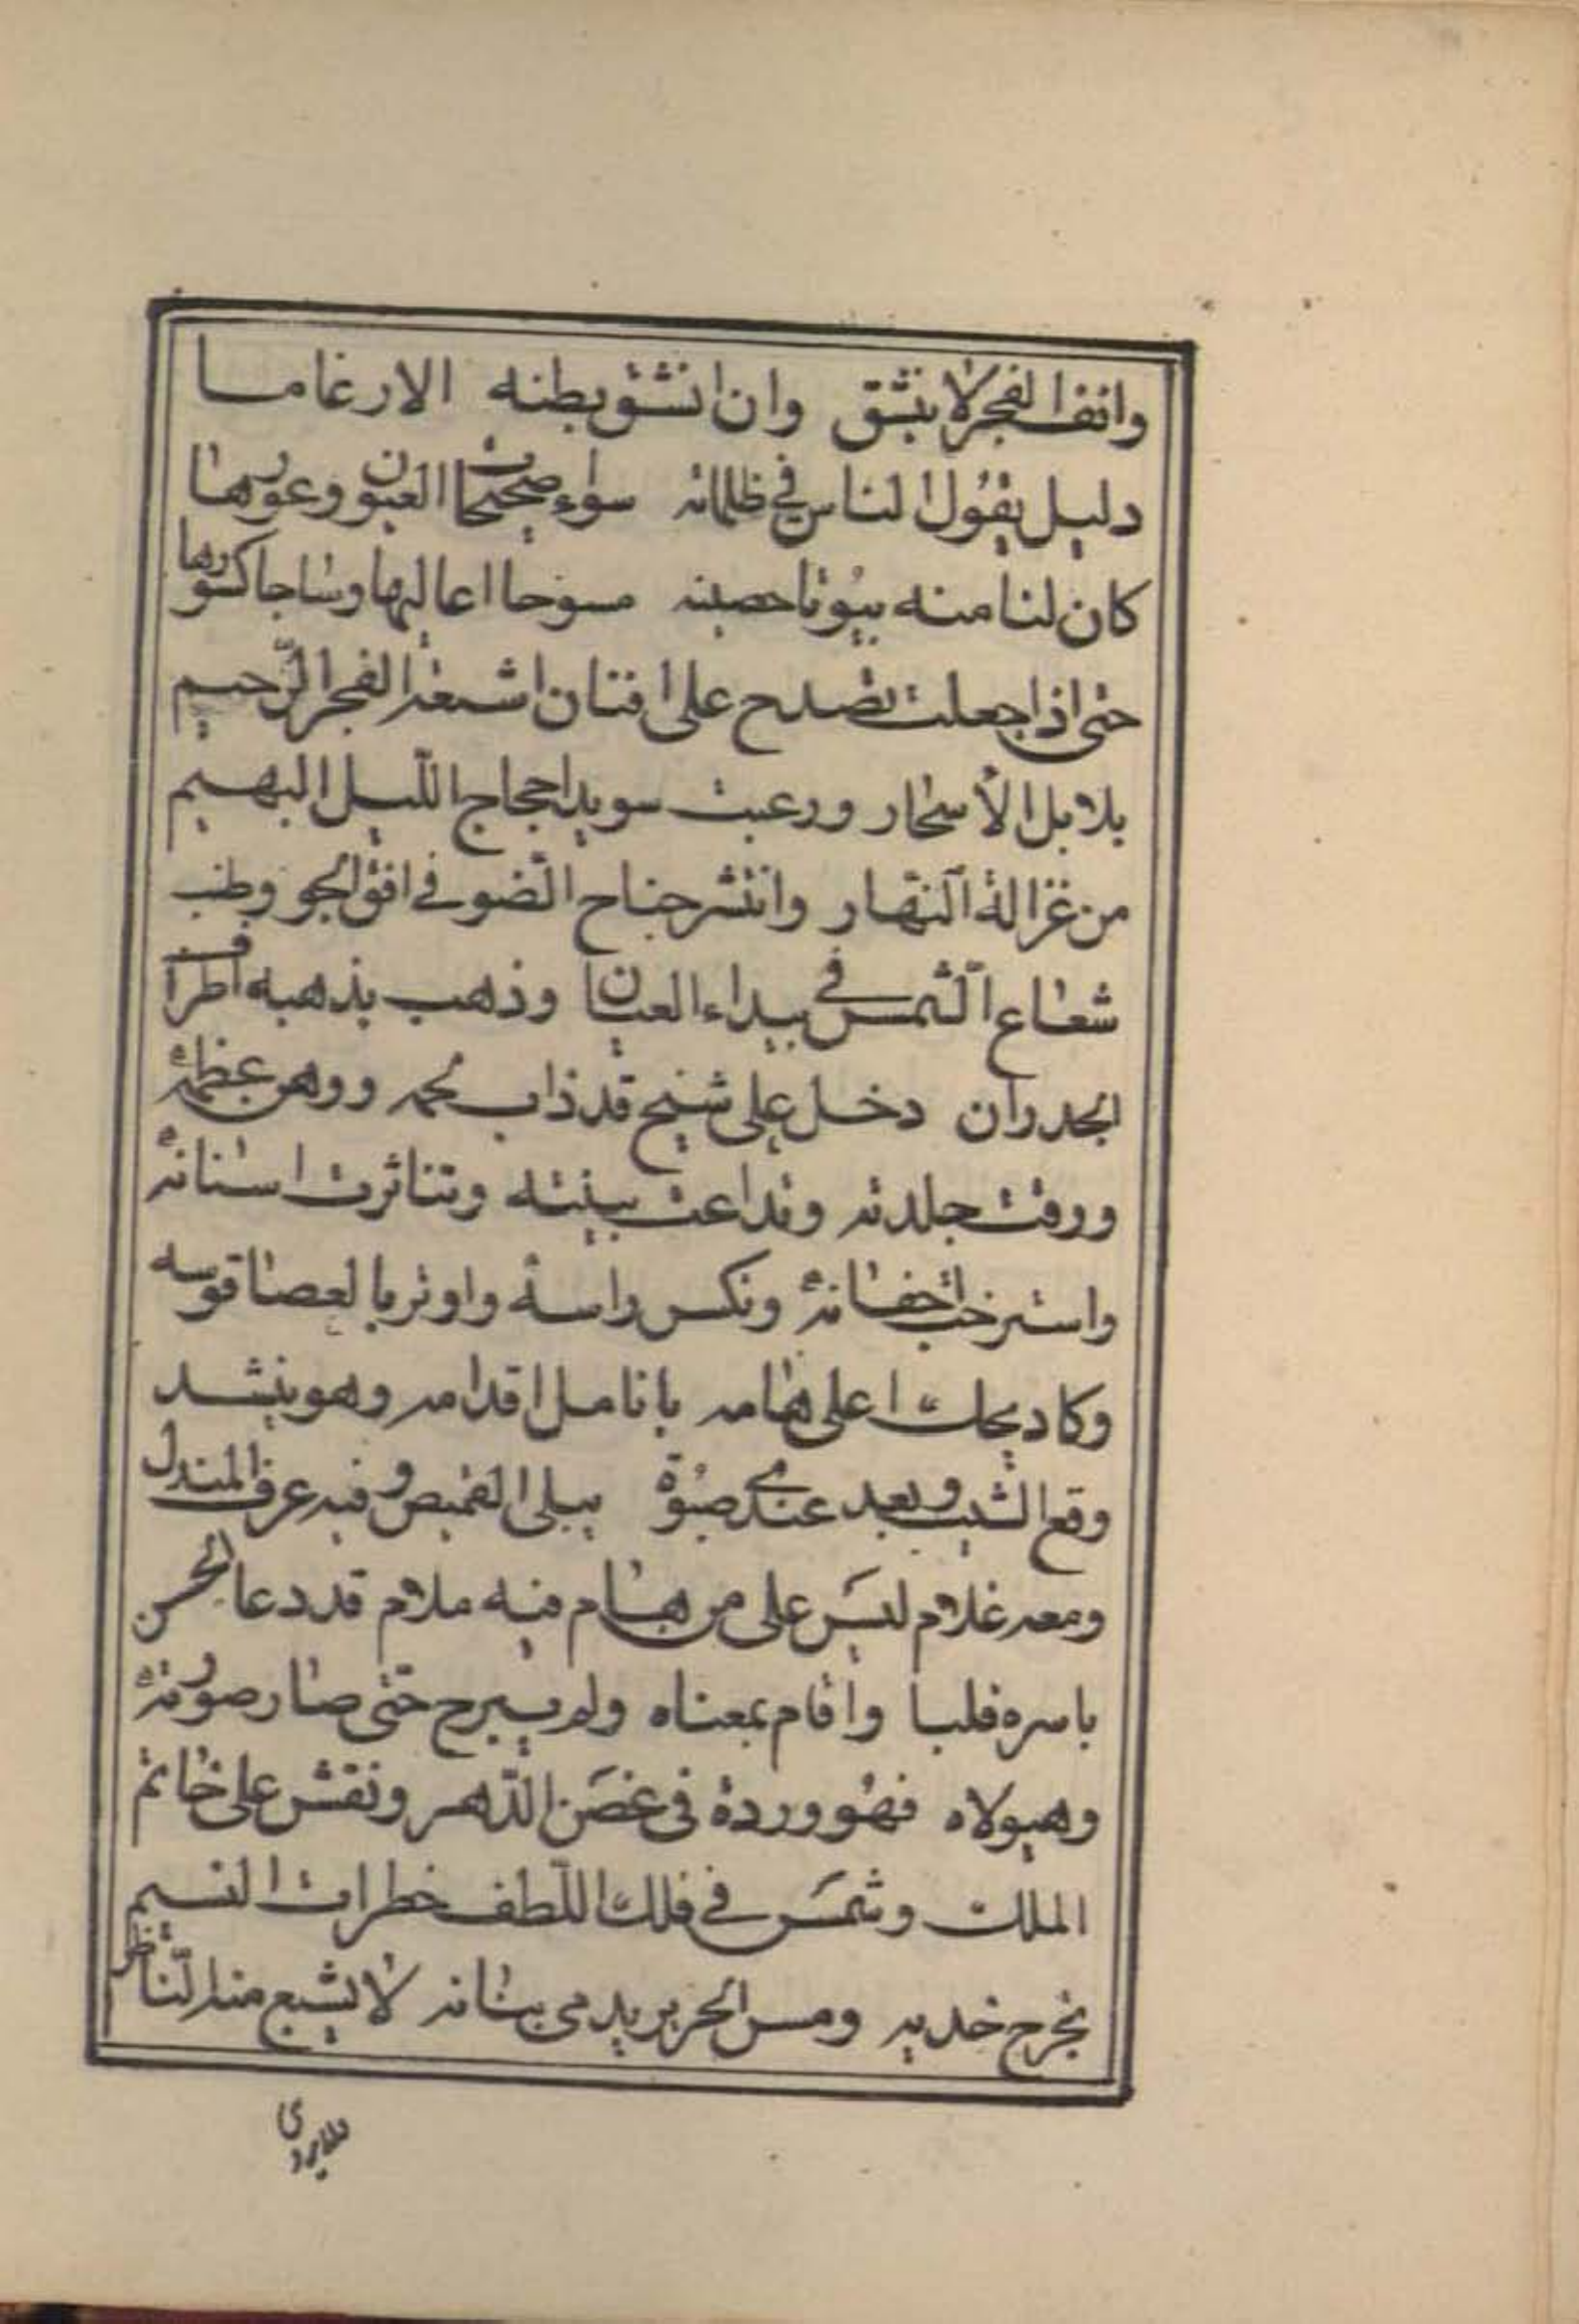 وانف الفجر لا ينشق وان انشق بطنه الارغاما
دليل يقول الناس في ظلماته سواء صحيحات العيون وعورها
كان لنا منه بيوتا حصينه مسوحا اعاليها وساجا كسورها
حتى اذا جعلت تصدح على افنان اشعة الفجر الرحيم
بلابل الأسحار ورعبت سويدا حجاج الليل البهيم
من غزالة النهار وانتشر جناح الضو في افق الجو وطنب
شعاع الشمس في بيداء العيان وذهب بذهبه اطراف
الجدران دخل علي شيخ قد ذاب محمه ووهن عظمه
ورقت جلدته وتداعت بينته وتناثرت اسنانه
واسترخت اجفانه ونكس راسه واوتر بالعصا قوسه
وكاد يحك اعلى هامه بانامل اقدامه وهو ينشد
وقع الشيب وبعد عندي صبوة يبلى القميص وفيه عرف المندل
ومعه غلام ليس على من هام فيه ملام قد دعا الحسن
باسره فلبا واقام بمعناه ولم يبرح حتى صار صورته
وهيولاه فهو وردة في غصن الدهر ونقش على خاتم
الملك وشمس في فلك اللطف خطرات النسيم
تجرح خديه ومس الحرير يدمي بنانه لا يشبع منه الناظر